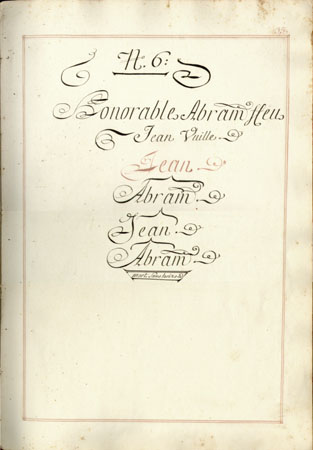 N. 6:
Honorable Abram Heu
Jean Vuille
Jean
Abram
Jean
Abram
mort